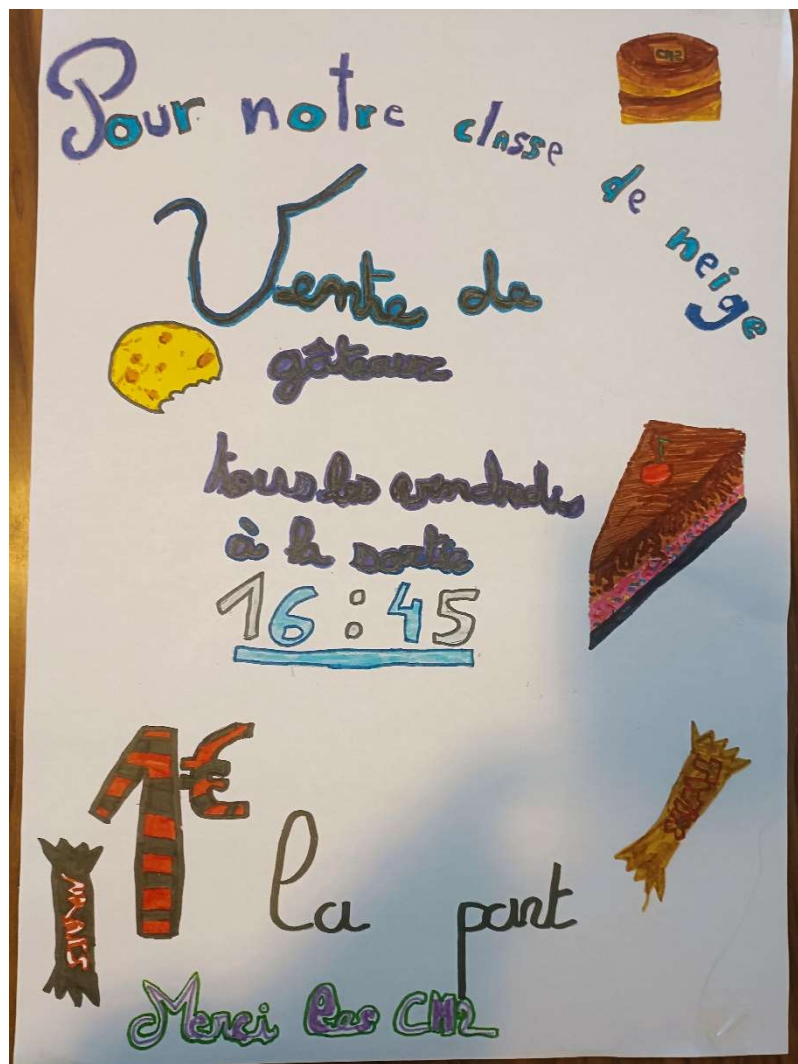 Pour notre classe de neige
CM2
Vente de
gâteaux
tous les vendredis
à la sortie
16:45
1€
la part
Merci les CM2